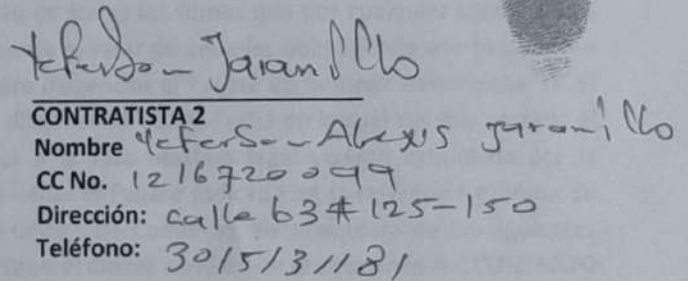 Yeferson Jaramillo
CONTRATISTA 2
Nombre Yeferson Alexis Jaramillo
CC No. 1216720099
Dirección: calle 63 # 125-150
Teléfono: 3015131181